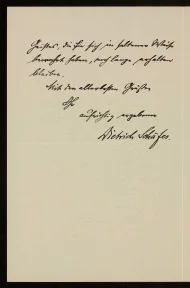 Geistes, die Sie sich in seltener Weise
bewahrt haben, noch lange erhalten
bleiben.
Mit den allerbesten Grüßen
Ihr
aufrichtig ergebener
Dietrich Schäfer.